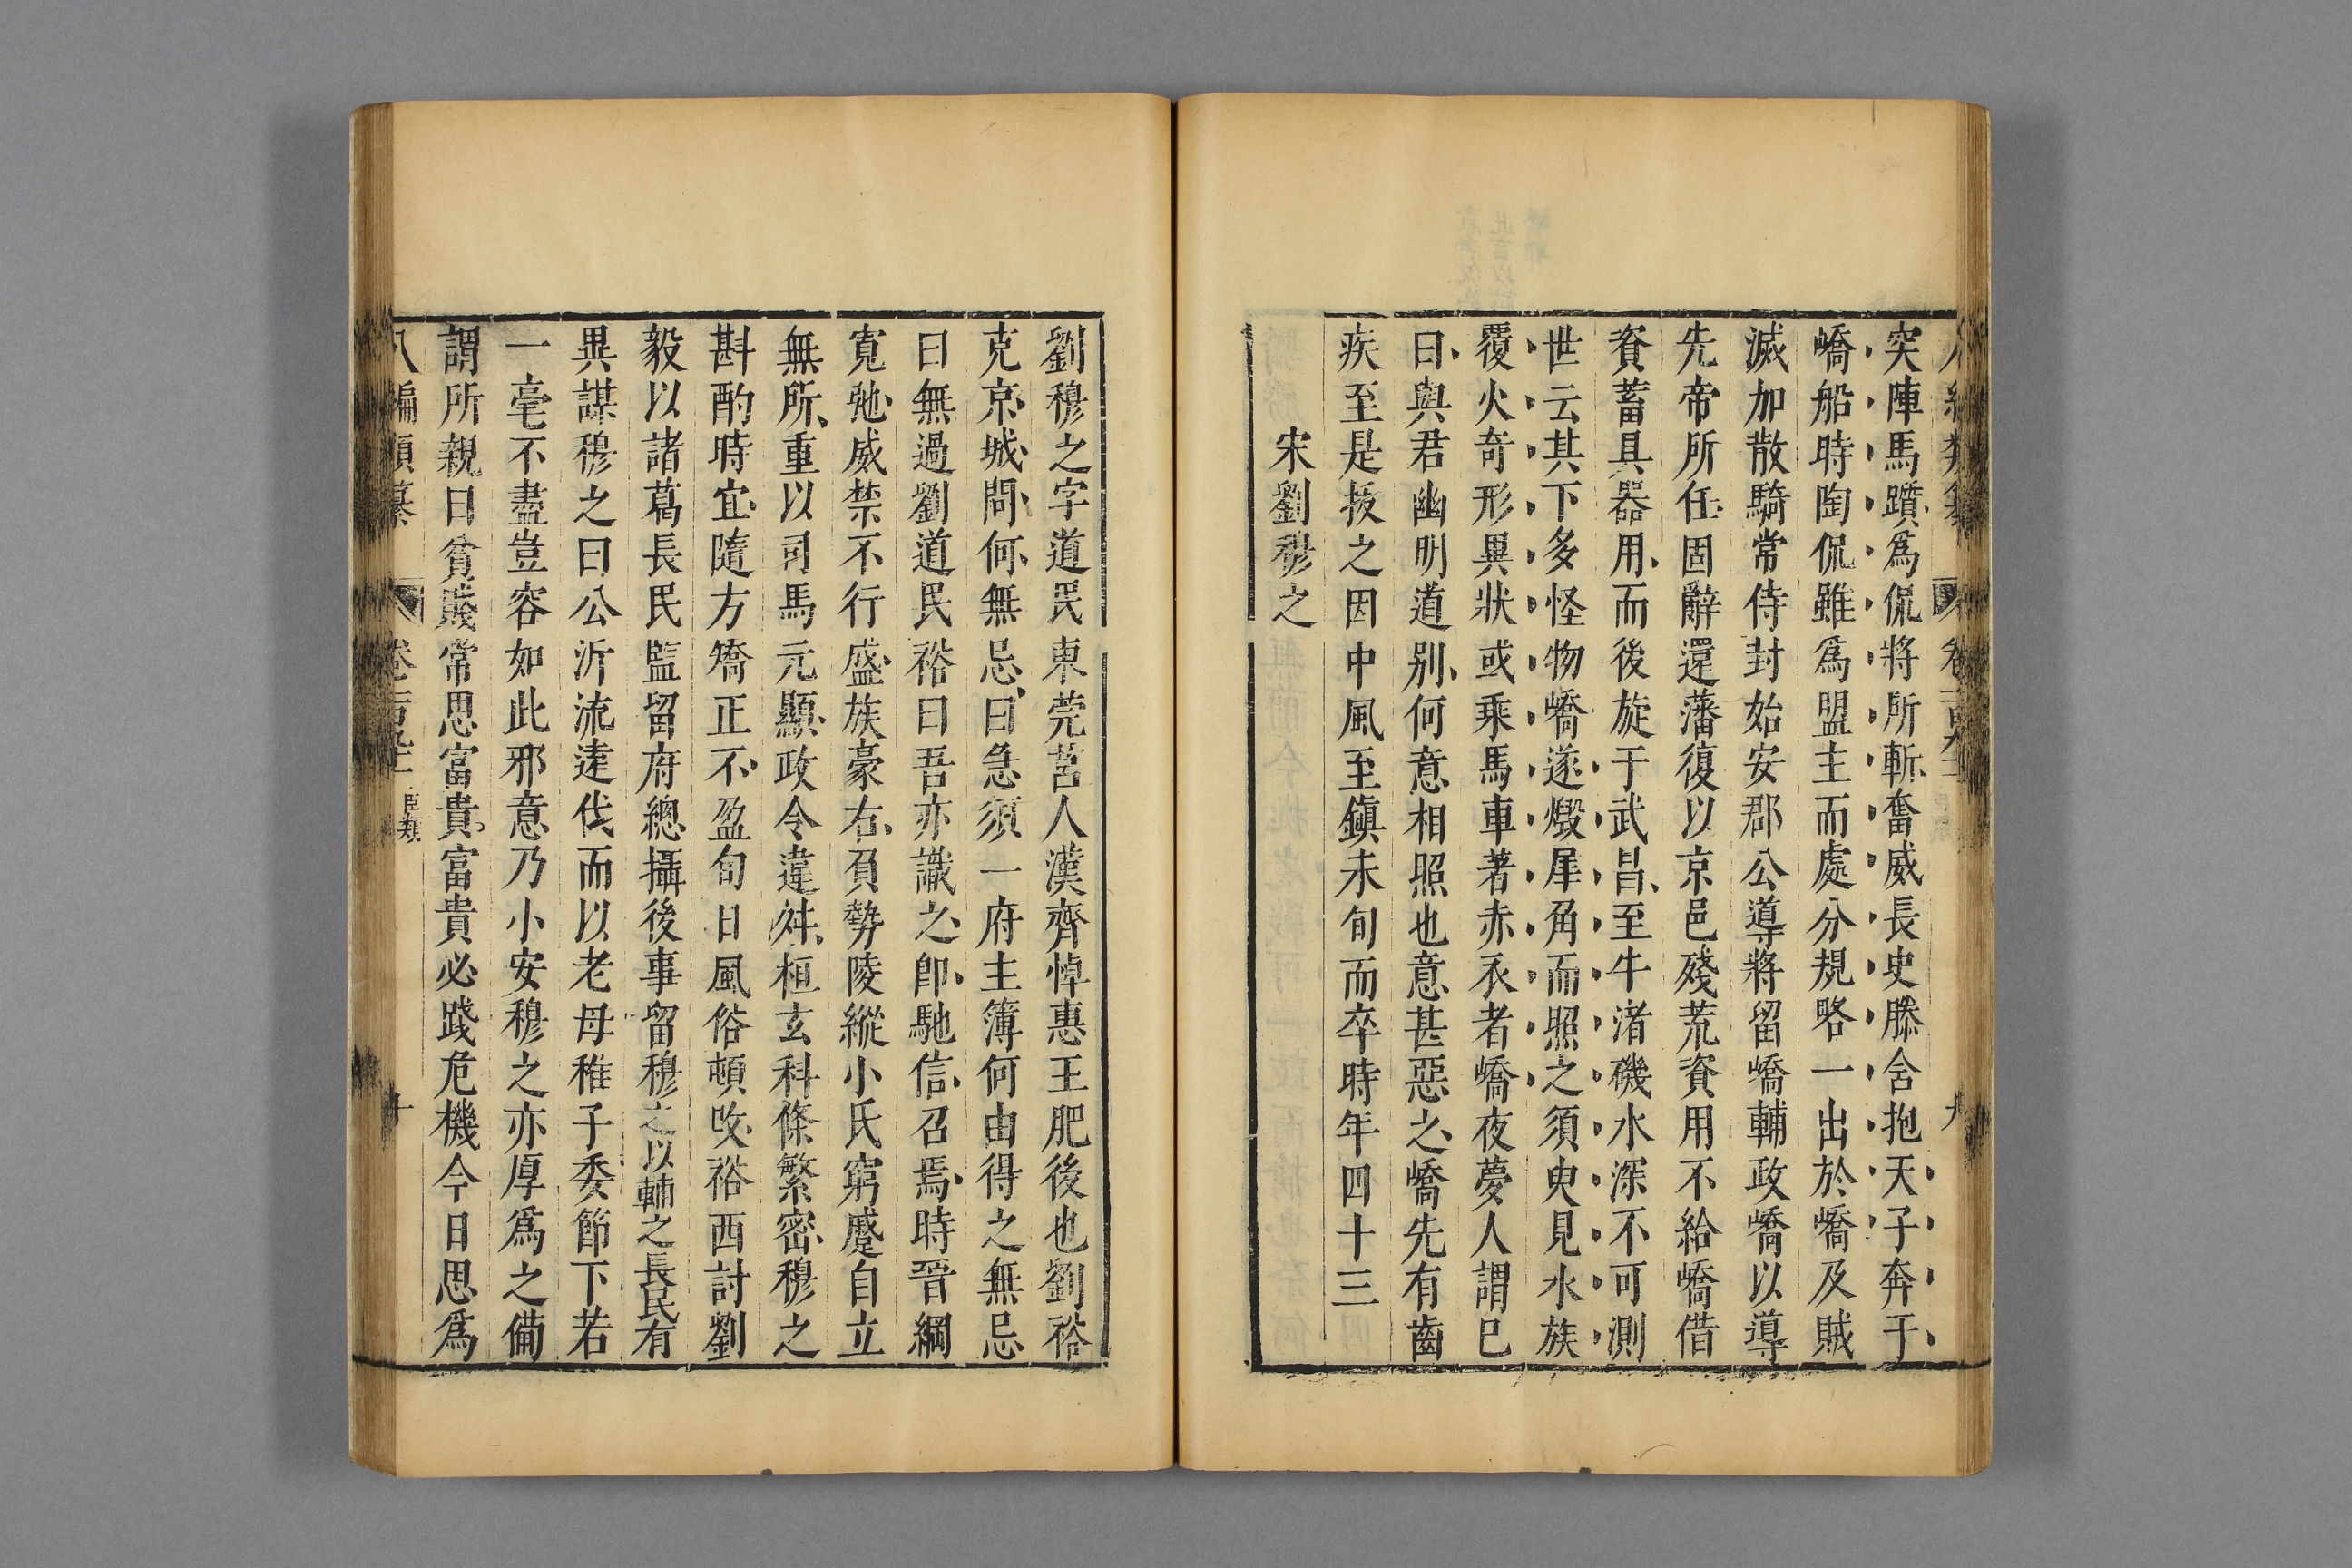 突陣馬躓爲侃將所斬奮威長史滕含抱天子奔于
嶠船時陶侃雖爲盟主而處分規略一出於嶠及賊
滅加散騎常侍封始安郡公導將留嶠輔政嶠以導
先帝所任固辭還藩復以京邑殘荒資用不給嶠借
資蓄具器用而後旋于武昌至牛渚磯水深不可測
世云其下多怪物嶠遂燬犀角而照之須臾見水族
覆火奇形異狀或乘馬車著赤衣者嶠夜夢人謂已
曰與君幽明道别何意相照也意甚惡之嶠先有齒
疾至是拔之因中風至鎭未旬而卒時年四十三
宋劉穆之
劉穆之字道民東莞莒人漢齊悼惠王肥後也劉裕
克京城問何無忌曰急須一府主簿何由得之無忌
曰無過劉道民裕曰吾亦識之卽馳信召焉時晉綱
寛弛威禁不行盛族豪右負勢陵縱小民窮蹙自立
無所重以司馬元顯政令違舛桓玄科條繁密穆之
斟酌時宜隨方矯正不盈旬日風俗頓改裕西討劉
毅以諸葛長民監留府總攝後事留穆之以輔之長民有
異謀穆之曰公泝流遠伐而以老母稚子委節下若
一毫不盡豈容如此邪意乃小安穆之亦厚爲之備
謂所親曰貧賤常思富貴富貴必踐危機今日思爲
八編類纂 卷 臣類 十